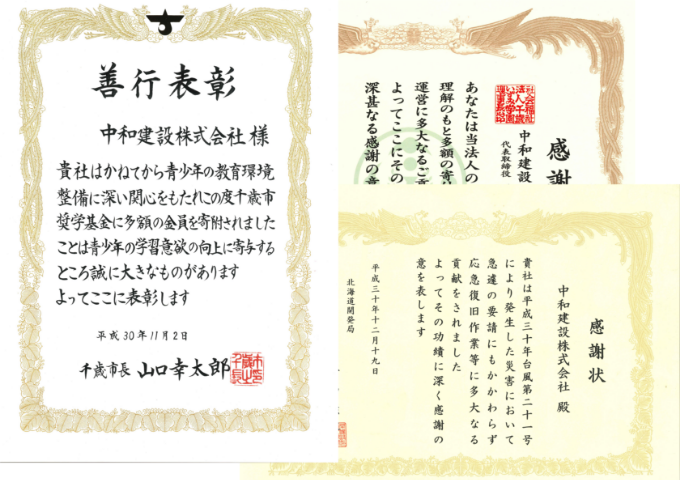 善行表彰
中和建設株式会社 様
貴社はかねてから青少年の教育環境
整備に深い関心をもたれこの度千歳市
奨学基金に多額の金員を寄附されました
ことは青少年の学習意欲の向上に寄与する
ところ誠に大きなものがあります
よってここに表彰します
平成30年11月2日
千歳市長 山口幸太郎
感謝
中和建設
代表取締役
あなたは当法人の
理解のもと多額の寄
運営に多大なるご
よってここにその
深甚なる感謝の意
感謝状
中和建設株式会社 殿
貴社は平成三十年台風第二十一号
により発生した災害において
急遽の要請にもかかわらず
応急復旧作業等に多大なる
貢献をされました
よってその功績に深く感謝の
意を表します
平成三十年十二月十九日
北海道開発局